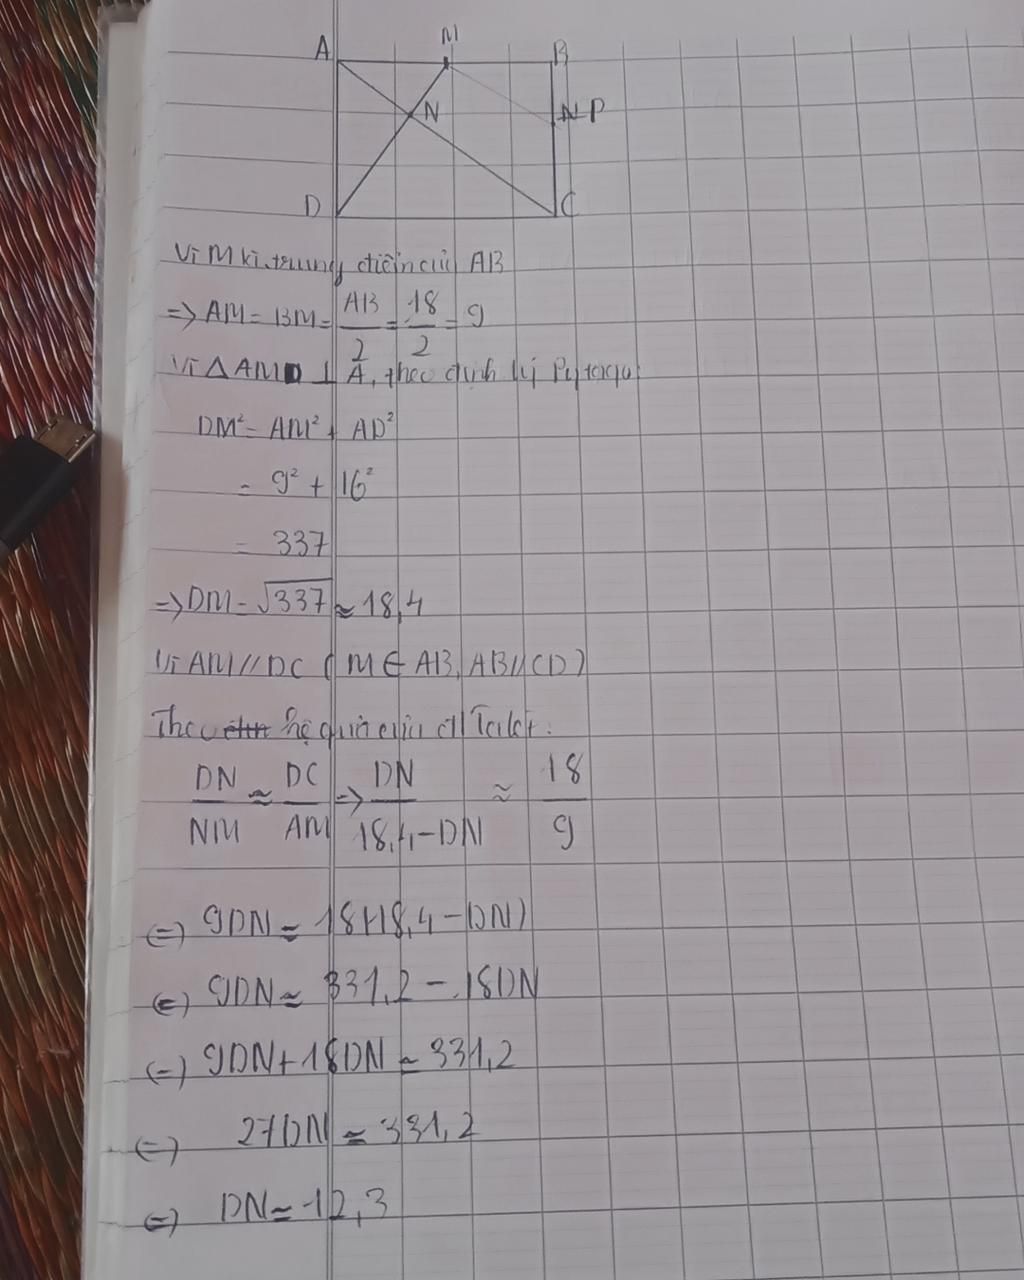 A M B
N N P
D C
Vì M là trung điểm của AB
=> AM = BM = AB/2 = 18/2 = 9
Vì △AMD ⊥ A, theo định lý Pytago
DM² = AM² + AD²
= 9² + 16²
= 337
=> DM = √337 ≈ 18,4
Vì AM // DC ( M ∈ AB, AB // CD )
Theo hệ quả của đl Talet:
DN/NM ≈ DC/AM => DN/18,4-DN ≈ 18/9
<=> 9DN ≈ 18(18,4 - DN)
<=> 9DN ≈ 331,2 - 18DN
<=> 9DN + 18DN ≈ 331,2
<=> 27DN ≈ 331,2
<=> DN ≈ 12,3